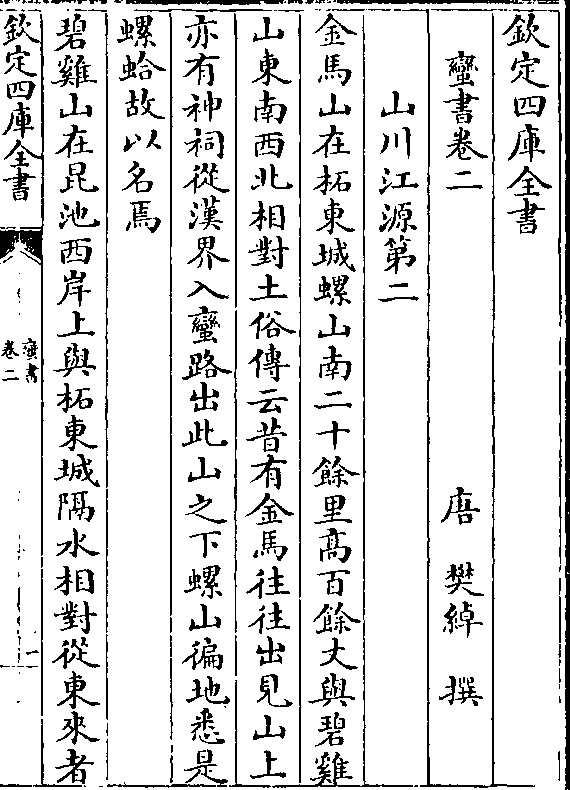 欽定四庫全書
蠻書卷二　　　　　唐　樊綽　撰
山川江源第二
金馬山在柘東城螺山南二十餘里髙百餘丈與碧雞
山東南西北相對土俗傳云昔有金馬往往出見山上
亦有神祠從漢界入蠻路出此山之下螺山徧地悉是
螺蛤故以名焉
碧雞山在昆池西岸上與柘東城隔水相對從東來者
欽定四庫全書
蠻書
卷二
一